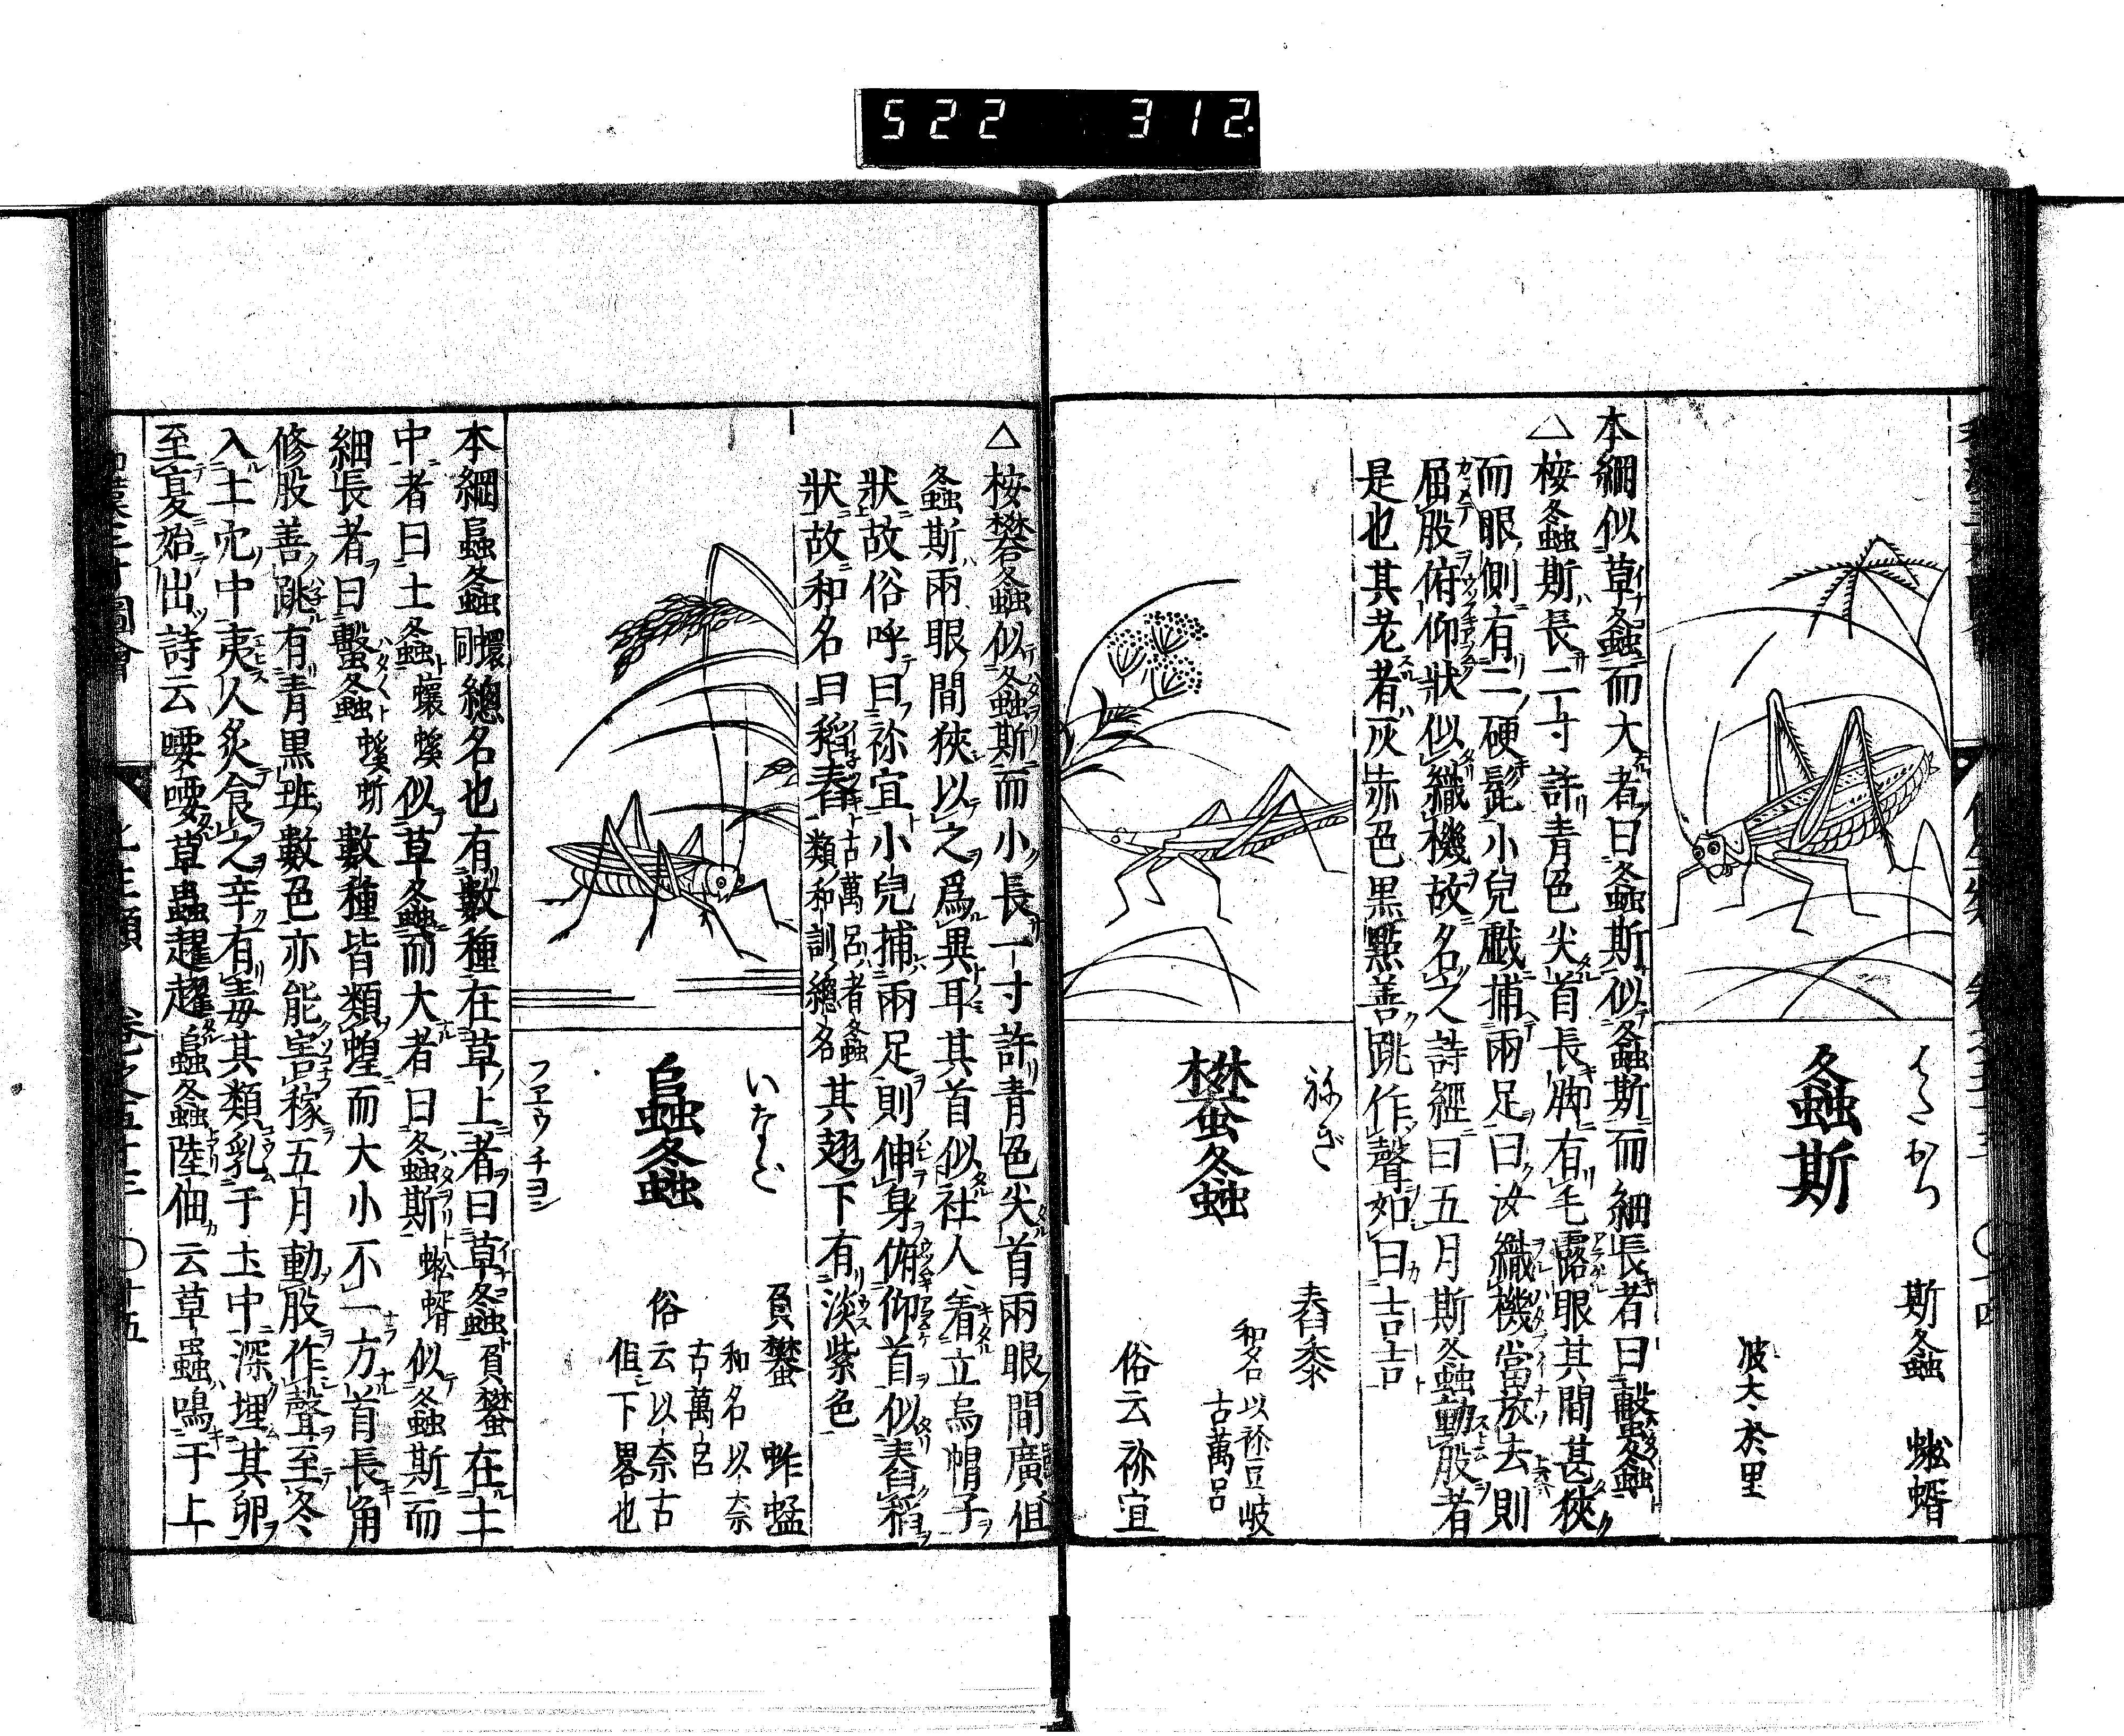 522 312.
はたおり
螽斯
斯螽 蜙蝑
波太於里
本綱似草螽而大者曰螽斯似螽斯而細長者曰螇螽
△桉螽斯長二寸許青色尖首長脚有毛露眼其間甚狹
而眼側有二硬髭小兒戲捕兩足曰汝織機當放去則
屈股俯仰狀似織機故名之詩經曰五月斯螽動股者
是也其老者灰赤色黒㸃善跳作聲如曰吉吉
ねぎ
蠜螽
舂黍
和名以祢豆岐
古萬呂
俗云祢宜
△桉蠜螽似螽斯而小長一寸許青色尖首兩眼間廣但
螽斯兩眼間狹以之爲異耳其首似社人着立烏帽子
狀故俗呼曰祢宜小兒捕兩足則伸身俯仰首似舂稻
狀故和名曰稻舂古萬呂者螽類和訓總名其翅下有淡紫色
いなご
𧒂螽
フヱウチヨン
負蠜 蚱蜢
和名以奈
古萬呂
俗云以奈古
但下畧也
本綱𧒂螽蠰同總名也有數種在草上者曰草螽負蠜在土
中者曰土螽蠰螇似草螽而大者曰螽斯蜙蝑似螽斯而
細長者曰螇螽螇蚸數種皆類蝗而大小不一方首長角
修股善跳有青黒班數色亦能害稼五月動股作聲至冬
入土穴中夷人炙食之辛有毒其類乳于土中深埋其卵
至夏始出詩云喓喓草蟲趯趯𧒂螽陸佃云草蟲鳴于上